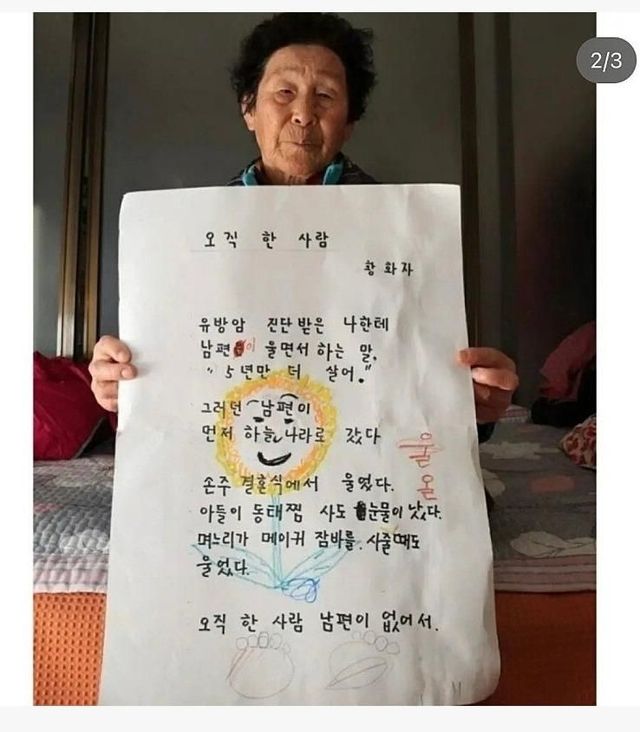 2/3
오직 한 사람
황화자
유방암 진단 받은 나한테
남편이 울면서 하는 말,
"5년만 더 살어."
그러던 남편이
먼저 하늘나라로 갔다
손주 결혼식에서 울었다.
아들이 동태찜 사도 눈물이 났다.
며느리가 메이커 잠바를 사줄때도
울었다.
오직 한 사람 남편이 없어서.
울
올